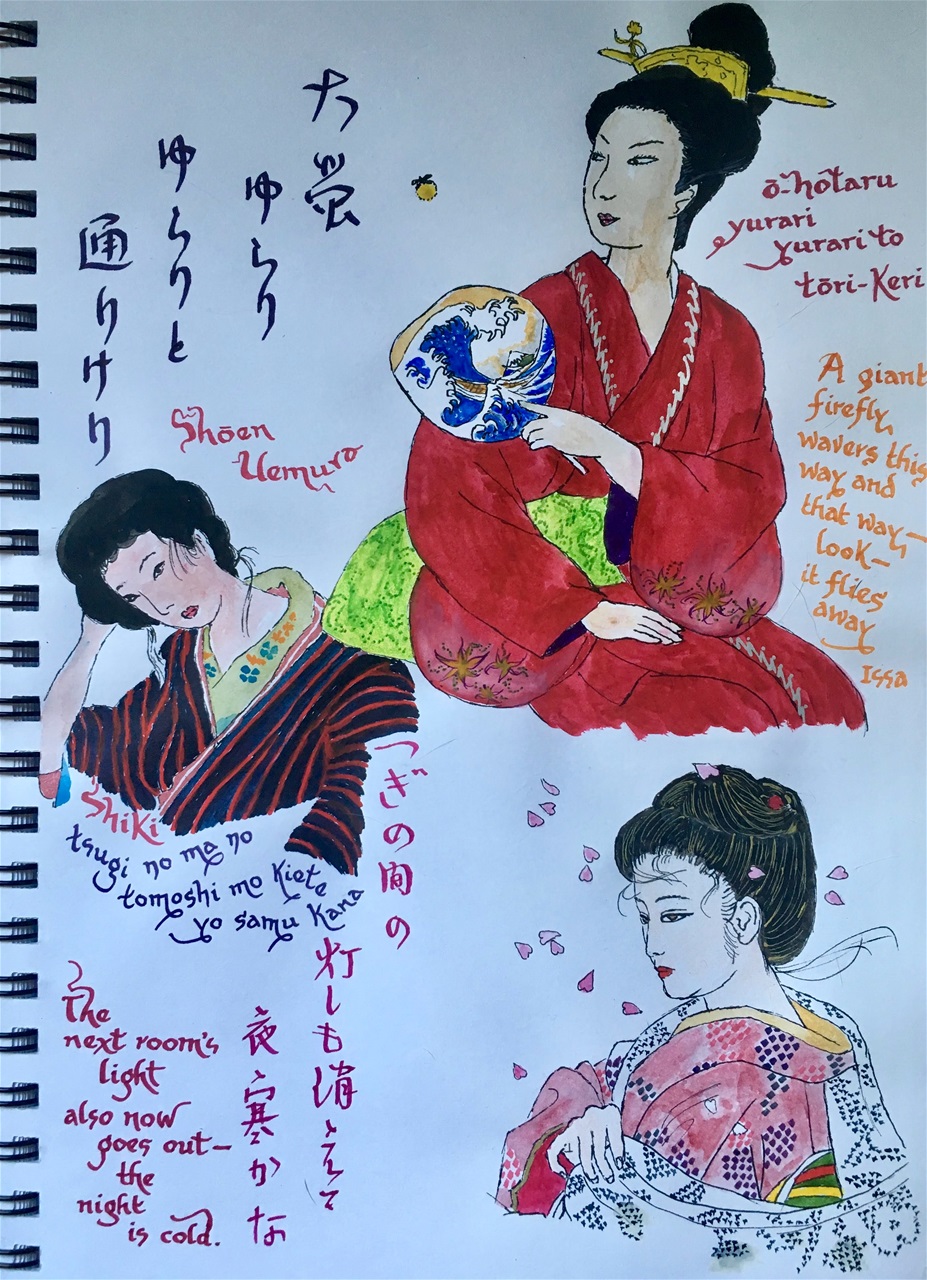 大螢
ゆらり
ゆらりと
通りけり
ō-hotaru
yurari
yurari to
tōri-Keri
A giant
firefly,
wavers this
way and
that way,—
look—
it flies
away
Issa
Shōen
Uemura
Shiki
tsugi no ma no
tomoshi mo Kiete
yo samu Kana
つぎの間の
灯しも消えて
夜寒かな
The
next room's
light
also now
goes out—
the
night
is cold.